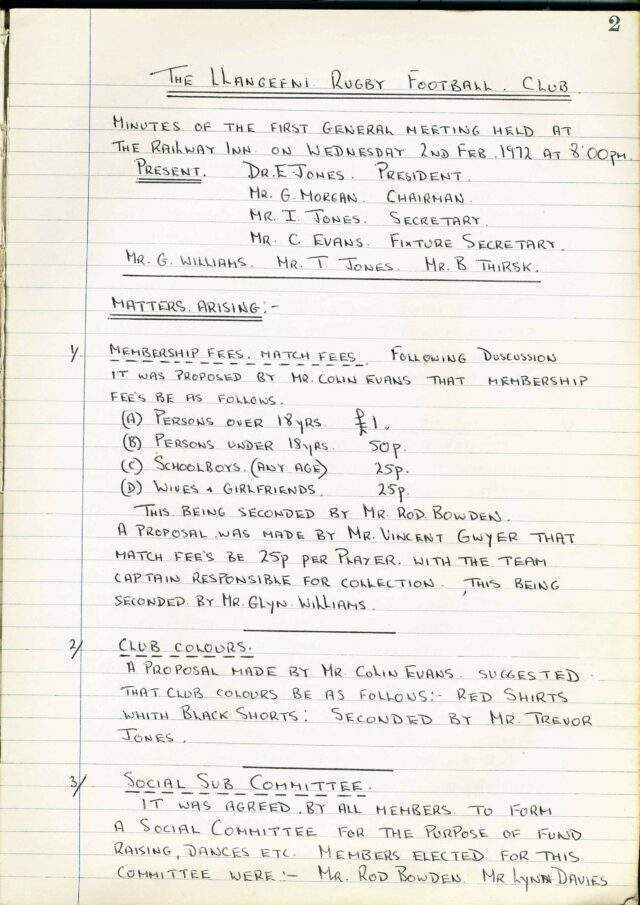 2
THE LLANGEFNI RUGBY FOOTBALL. CLUB
MINUTES OF THE FIRST GENERAL MEETING HELD AT
THE RAILWAY INN. ON WEDNESDAY 2ND FEB. 1972 AT 8:00PM.
PRESENT. DR.E.JONES. PRESIDENT.
MR. G. MORGAN. CHAIRMAN.
MR. I. JONES. SECRETARY.
MR. C. EVANS. FIXTURE SECRETARY.
MR. G. WILLIAMS. MR. T JONES. MR. B THIRSK.
MATTERS. ARISING:-
1/ MEMBERSHIP FEES. MATCH FEES. FOLLOWING DUSCUSSION
IT WAS PROPOSED BY MR. COLIN EVANS THAT MEMBERSHIP
FEE'S BE AS FOLLOWS.
(A) PERSONS OVER 18YRS. £1.
(B) PERSONS UNDER 18YRS. 50p.
(C) SCHOOLBOYS. (ANY AGE) 25p.
(D) WIVES + GIRLFRIENDS. 25p.
THIS BEING SECONDED BY MR. ROD. BOWDEN.
A PROPOSAL WAS MADE BY MR. VINCENT GWYER THAT
MATCH FEE'S BE 25p PER PLAYER. WITH THE TEAM
CAPTAIN RESPONSIBLE FOR COLLECTION. THIS BEING
SECONDED. BY MR. GLYN. WILLIAMS.
2/ CLUB COLOURS.
A PROPOSAL MADE BY MR. COLIN EVANS. SUGGESTED
THAT CLUB COLOURS BE AS FOLLOWS:- RED SHIRTS
WHITH BLACK SHORTS: SECONDED BY MR. TREVOR
JONES.
3/ SOCIAL SUB COMMITTEE.
IT WAS AGREED. BY ALL MEMBERS. TO FORM
A SOCIAL COMMITTEE FOR THE PURPOSE OF FUND
RAISING, DANCES ETC. MEMBERS ELECTED FOR THIS
COMMITTEE WERE:- MR. ROD BOWDEN. MR LYNN DAVIES